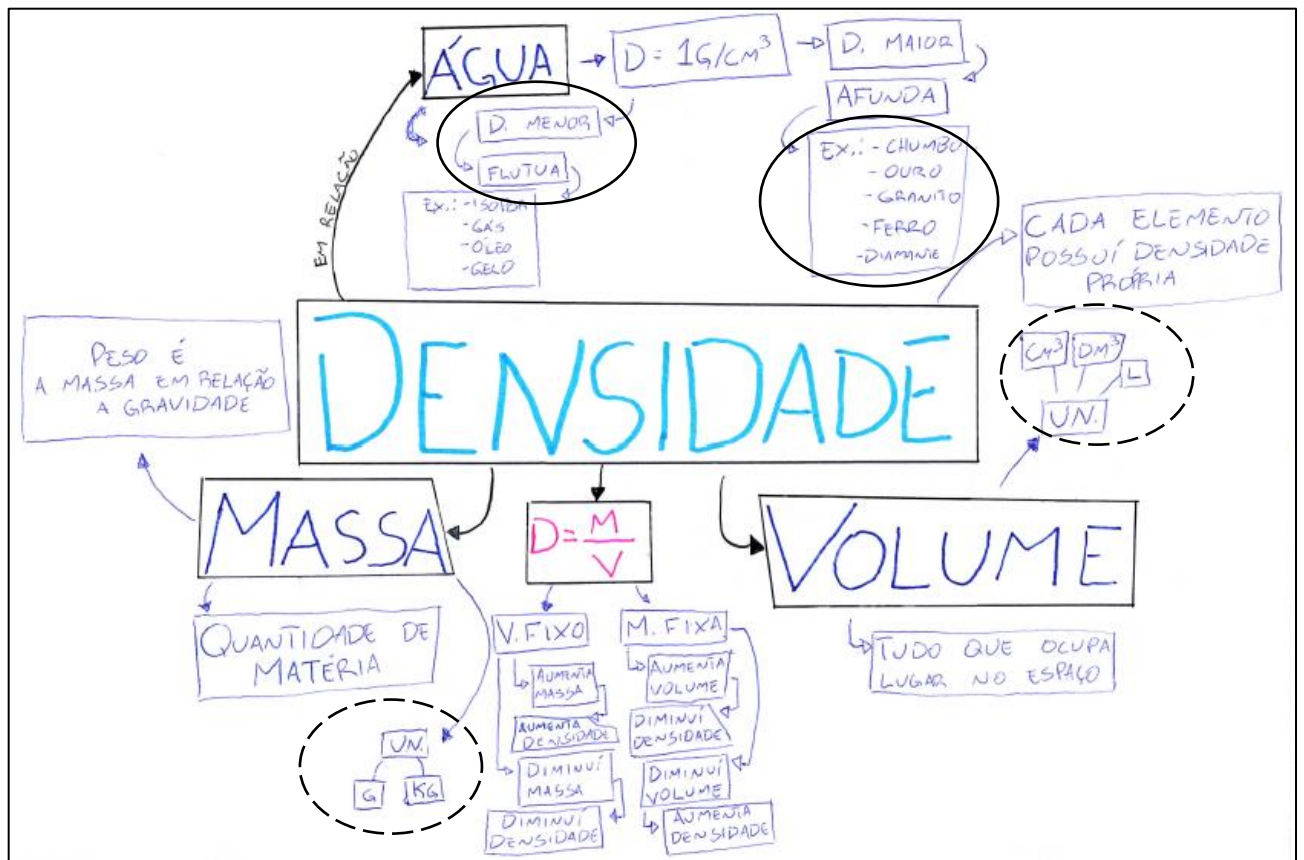 ÁGUA
D = 1G/CM³
D. MAIOR
AFUNDA
EX.: - CHUMBO
- OURO
- GRANITO
- FERRO
- DIAMANTE
D. MENOR
FLUTUA
EX.: - ISOPOR
- GÁS
- ÓLEO
- GELO
EM RELAÇÃO
CADA ELEMENTO
POSSUÍ DENSIDADE
PRÓPRIA
DENSIDADE
PESO É
A MASSA EM RELAÇÃO
A GRAVIDADE
CM³
DM³
L
UN.
MASSA
D = M
V
VOLUME
QUANTIDADE DE
MATÉRIA
UN.
G
KG
V. FIXO
AUMENTA
MASSA
AUMENTA
DENSIDADE
DIMINUÍ
MASSA
DIMINUÍ
DENSIDADE
M. FIXA
AUMENTA
VOLUME
DIMINUÍ
DENSIDADE
DIMINUÍ
VOLUME
AUMENTA
DENSIDADE
TUDO QUE OCUPA
LUGAR NO ESPAÇO